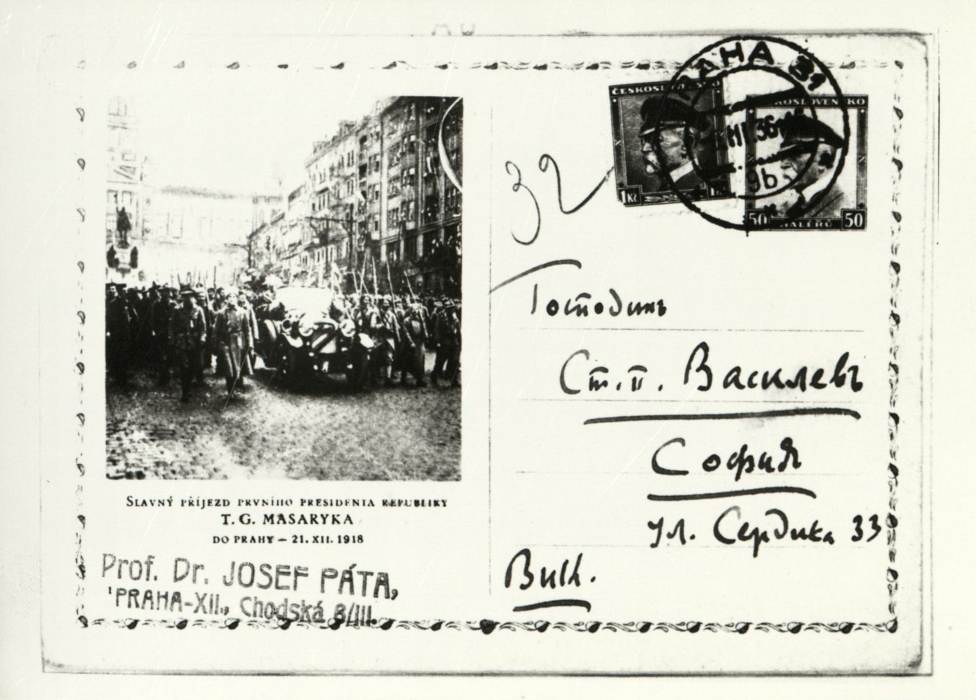 SLAVNÝ PŘÍJEZD PRVNÍHO PRESIDENTA REPUBLIKY
T. G. MASARYKA
DO PRAHY – 21. XII. 1918
Prof. Dr. JOSEF PÁTA,
PRAHA-XII., Chodská 8/III.
PRAHA 31
36
9b
1 Kč
50 HALÉŘŮ 50
32
Господинъ
Ст. п. Василевъ
София
ул. Сердика 33